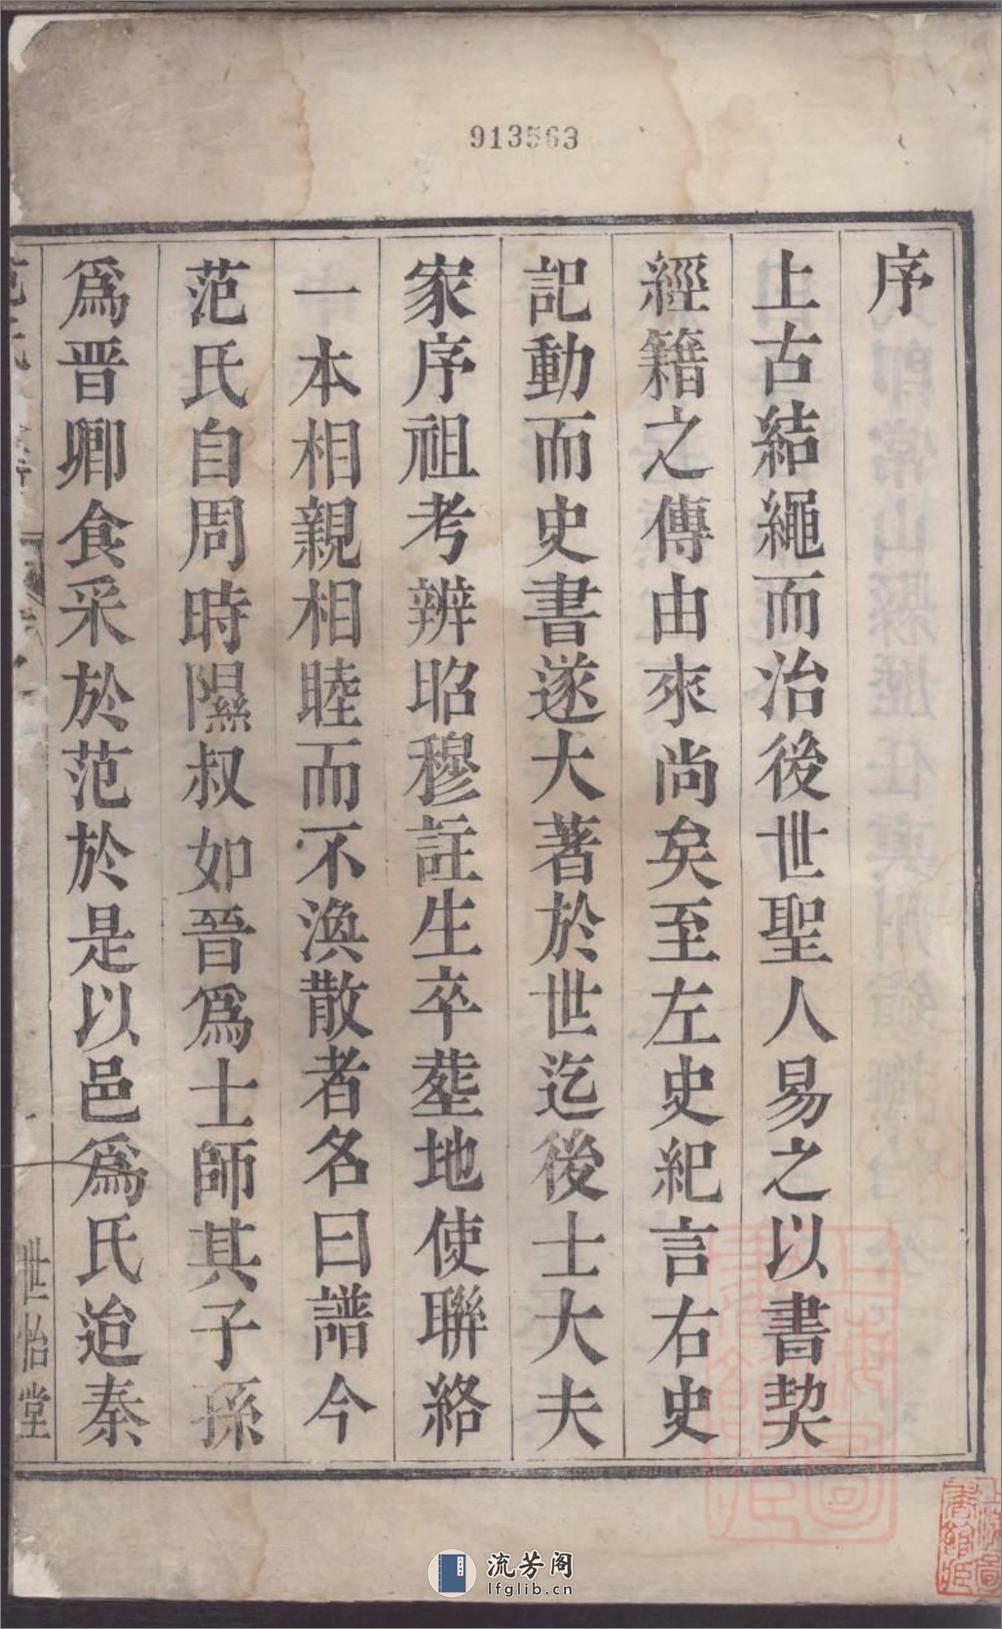 913563
序
上古結繩而治後世聖人易之以書契
經籍之傳由來尚矣至左史紀言右史
記動而史書遂大著於世迄後士大夫
家序祖考辨昭穆註生卒塟地使聯絡
一本相親相睦而不渙散者名曰譜今
范氏自周時隰叔如晉爲士師其子孫
爲晋卿食采於范於是以邑爲氏迨秦
世怡堂
上海圖書館藏
流芳阁
lfglib.cn